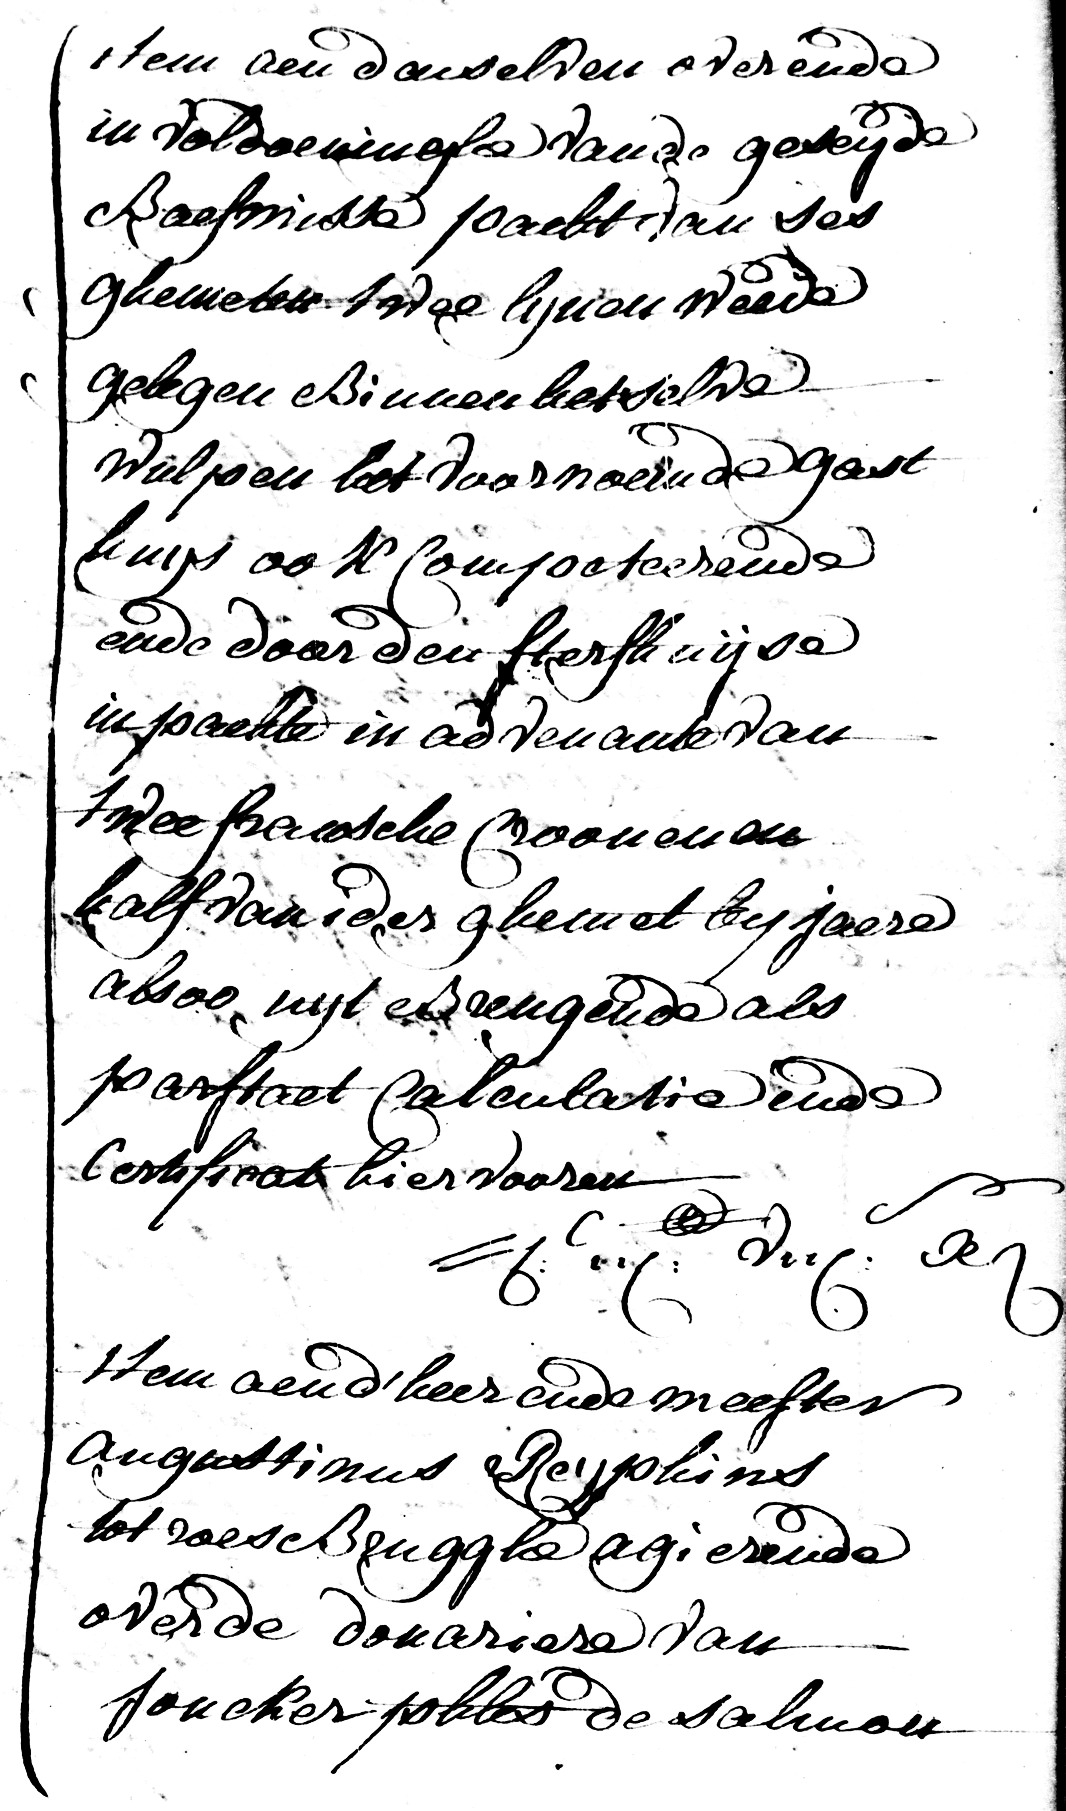 item aen den selven over ende
in voldoeninghe van de geseyde
Baefmisse pacht van ses
ghemeten twee lynen weede
gelegen Binnen het selve
wulpen het voornoemde gast
huys ook Competeerende
ende door den sterfhuijse
in pachte in advenante van
twee fransche Croonen en
half van ider ghemet by jaere
alsoo uyt Brengende als
par staet Calculatie ende
Certificat hier vooren
item aen d'heer ende meester
Augustinus Reyphins
tot roesBrugghe agierende
over de douariere van
joncker de salmon